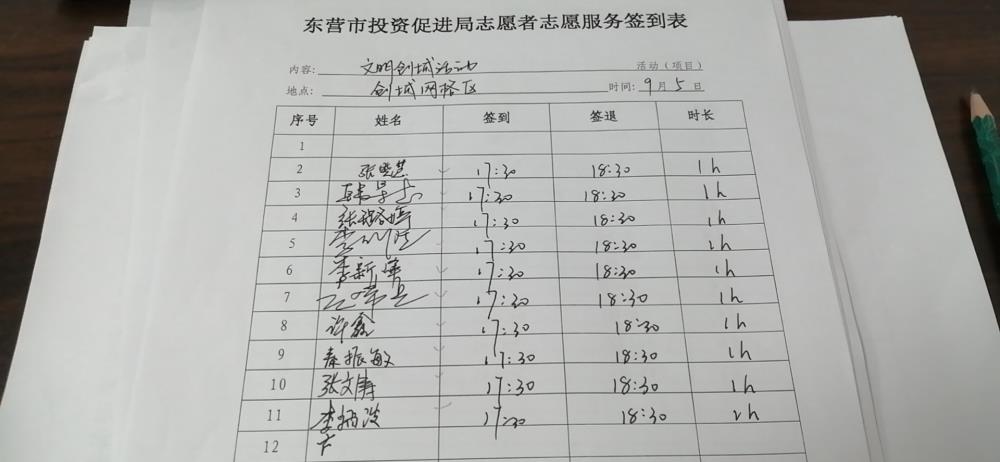 东营市投资促进局志愿者志愿服务签到表
内容: 文明创城活动 活动（项目）
地点: 创城网格区 时间: 9月5日
序号 姓名 签到 签退 时长
1
2 张晓其 17:30 18:30 1h
3 17:30 18:30 1h
4 17:30 18:30 1h
5 17:30 18:30 1h
6 李新泽 17:30 18:30 1h
7 17:30 18:30 1h
8 许鑫 17:30 18:30 1h
9 秦振敏 17:30 18:30 1h
10 张文涛 17:30 18:30 1h
11 17:30 18:30 1h
12